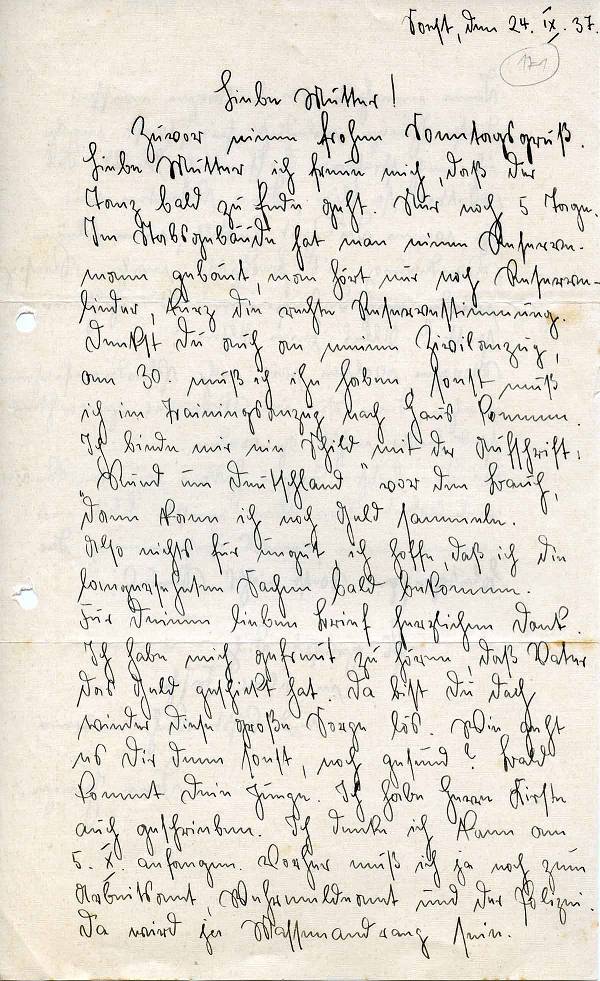 Soest, den 24. IX. 37.
171
Liebe Mutter!
Zuvor einen frohen Sonntagsgruß.
Liebe Mutter ich freue mich, daß der
Tanz bald zu Ende geht. Nur noch 5 Tage.
Im Stabsgebäude hat man einen Reserve-
mann gebaut, man hört nur noch Reserve-
lieder, kurz die rechte Reservestimmung.
Denkst Du auch an meinen Zivilanzug,
am 30. muß ich ihn haben, sonst muß
ich im Trainingsanzug nach Haus kommen.
Ich binde mir ein Schild mit der Aufschrift:
"Rund um Deutschland" vor den Bauch,
dann kann ich noch Geld sammeln.
Also nichts für ungut, ich hoffe, daß ich die
langersehnten Sachen bald bekomme.
Für Deinen lieben Brief herzlichen Dank.
Ich habe mich gefreut zu hören, daß Vater
das Geld geschickt hat. Da bist Du doch
wieder diese große Sorge los. Wie geht
es Dir denn sonst, noch gesund? Bald
kommt Dein Junge. Ich habe Herrn Kirste
auch geschrieben. Ich denke ich kann am
5. X. anfangen. Vorher muß ich ja noch zum
Arbeitsamt, Wehrmeldeamt und der Polizei.
Da wird ja Massenandrang sein.